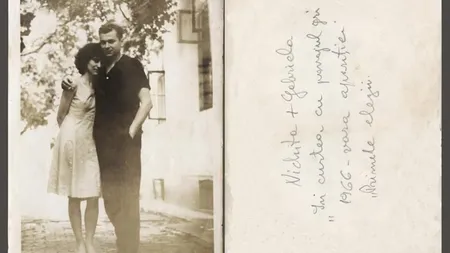 Nichita + Gabriela
"În curtea cu pavajul gri
1966 - vara apariției
"Primele elegii"